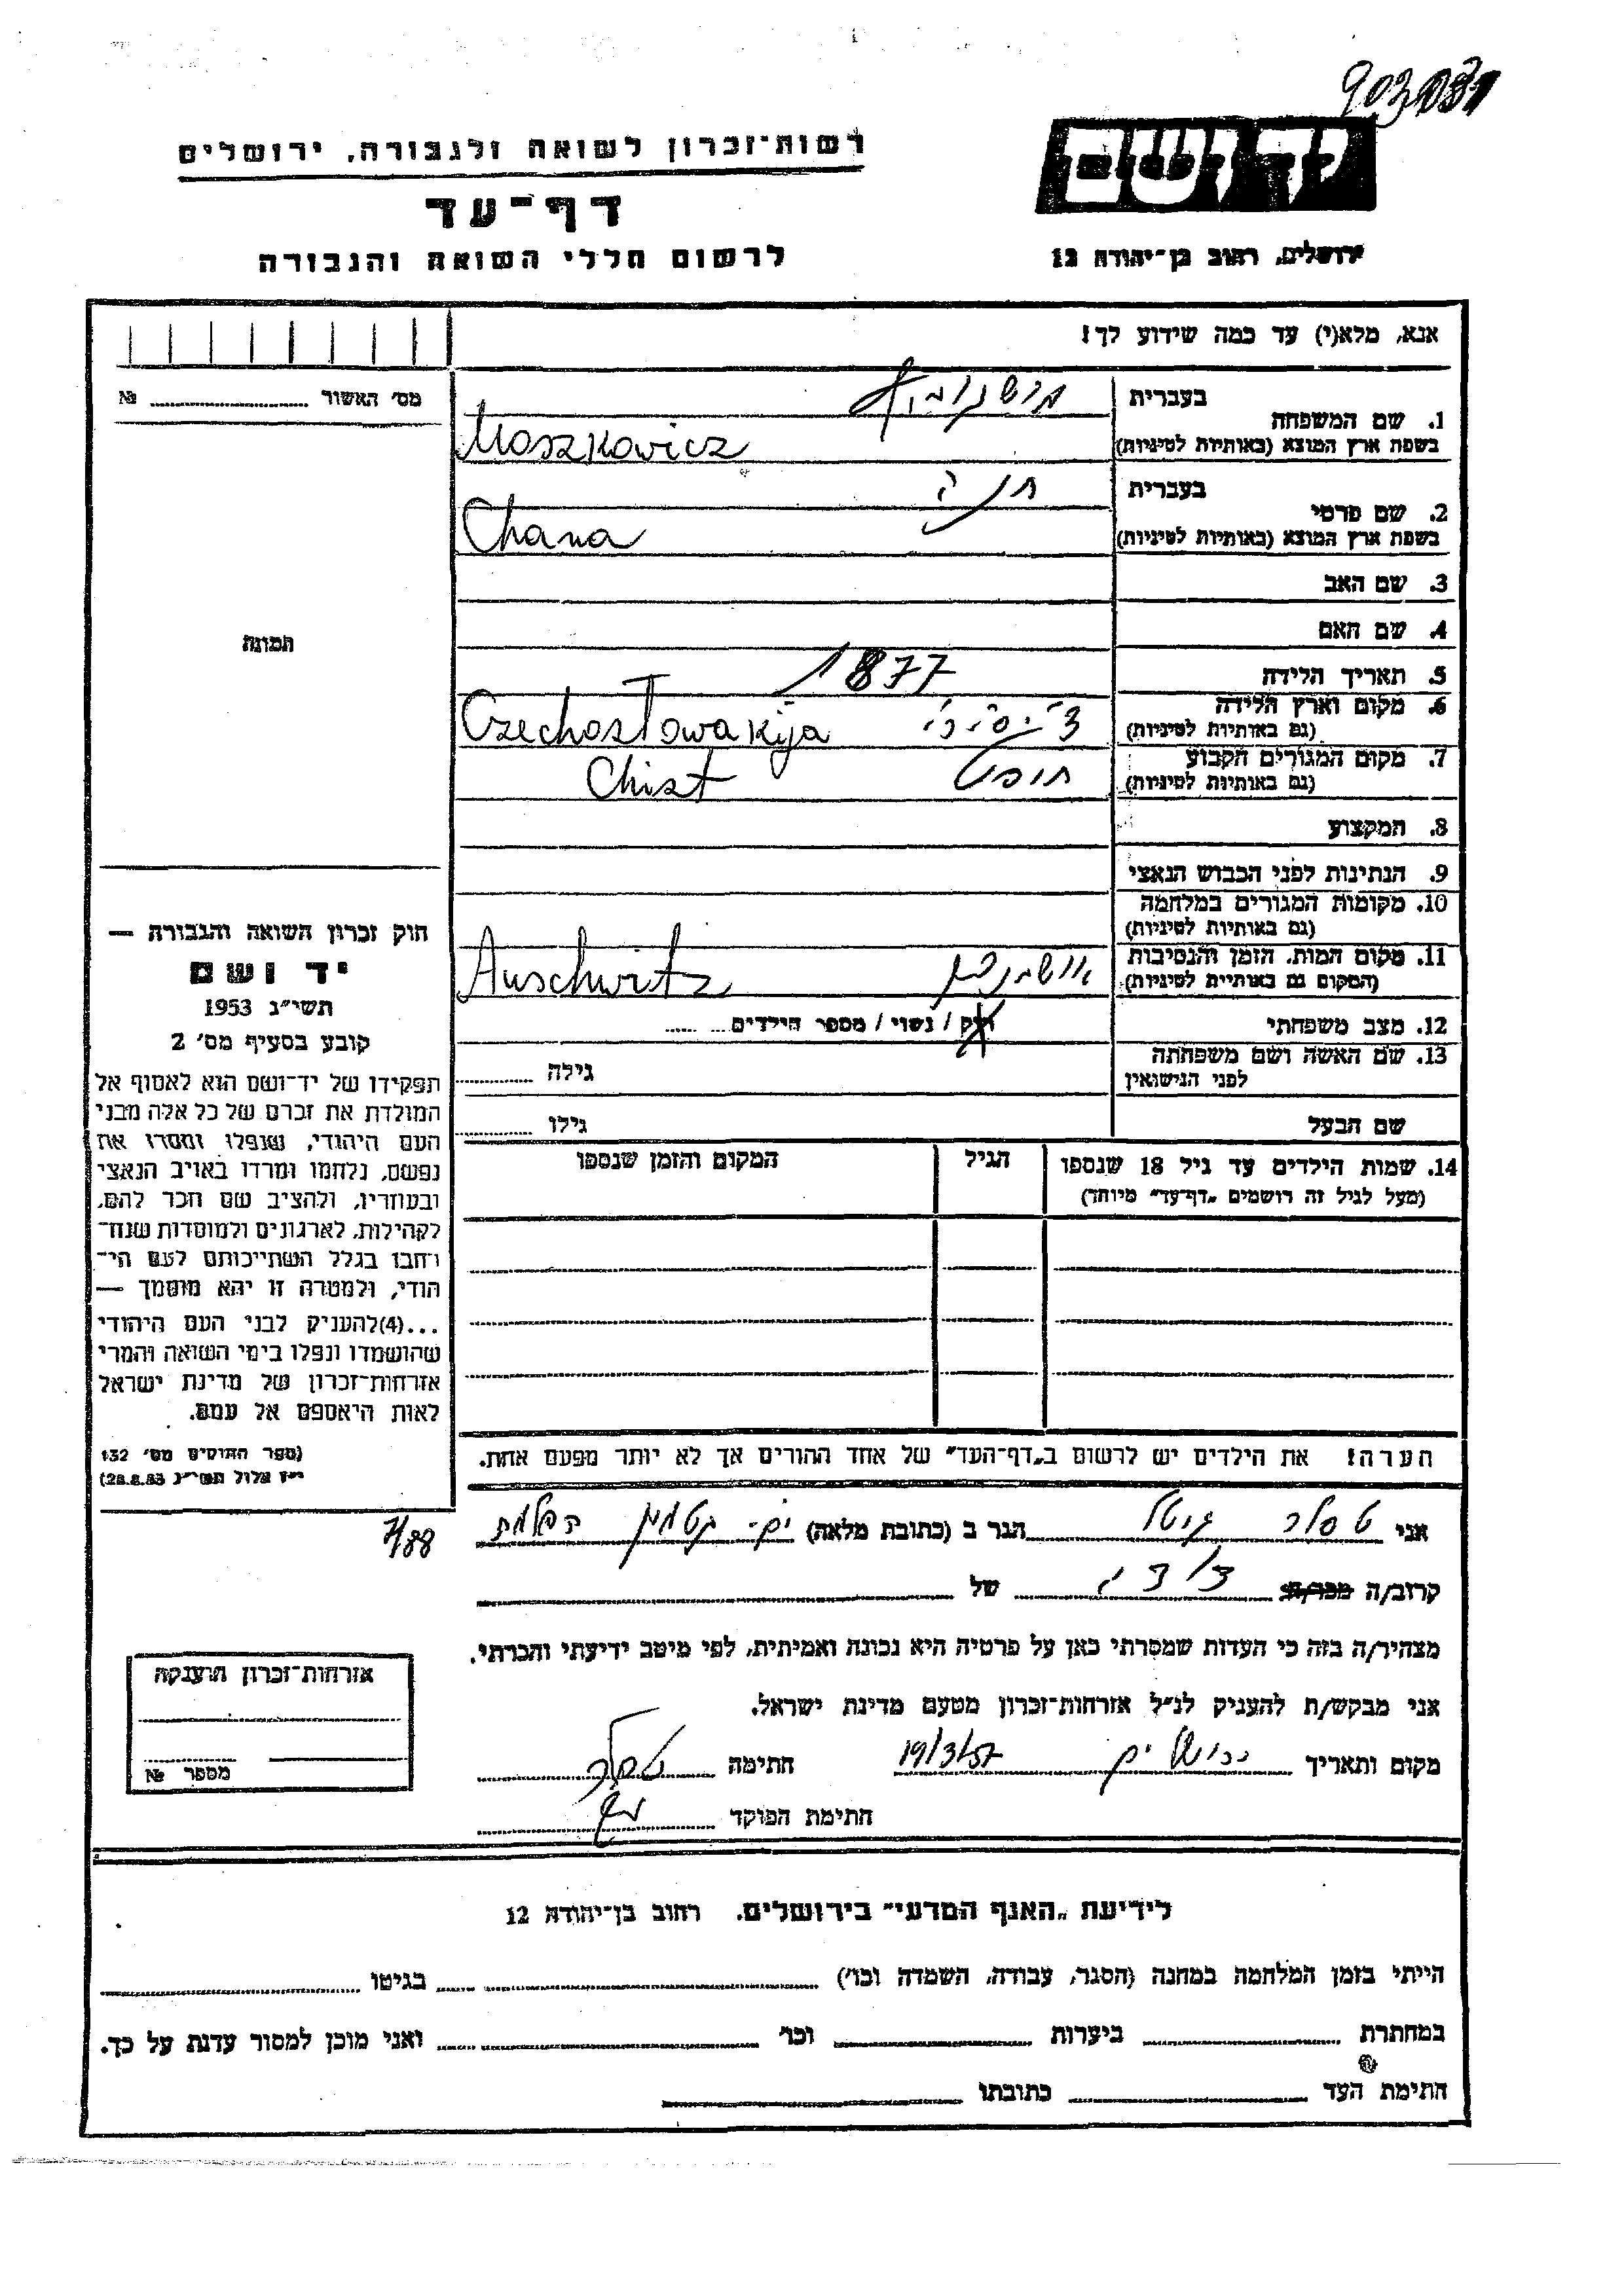 903/131
רשות־זכרון לשואה ולגבורה, ירושלים
יד ושם
דף־עד
לרשום חללי השואה והגבורה
ירושלים, רחוב בן־יהודה 12
אנא, מלא(י) עד כמה שידוע לך!
מס' האשור № 
1. שם המשפחה בעברית מושקוביץ
בשפת ארץ המוצא (באותיות לטיניות) Moszkowicz
2. שם פרטי בעברית חנה
בשפת ארץ המוצא (באותיות לטיניות) Chana
3. שם האב
4. שם האם
תמונה
5. תאריך הלידה 1877
6. מקום וארץ הלידה (גם באותיות לטיניות) Czechosłowakija
7. מקום המגורים הקבוע (גם באותיות לטיניות) חוסט Chust
8. המקצוע
9. הנתינות לפני הכבוש הנאצי
10. מקומות המגורים במלחמה (גם באותיות לטיניות)
11. מקום המות, הזמן והנסיבות (המקום גם באותיות לטיניות) אושויץ Auschwitz
12. מצב משפחתי רוק / נשוי / מספר הילדים
13. שם האשה ושם משפחתה לפני הנישואין גילה
שם הבעל גילו
14. שמות הילדים עד גיל 18 שנספו הגיל המקום והזמן שנספו
(מעל לגיל זה רושמים „דף־עד" מיוחד)
חוק זכרון השואה והגבורה —
יד ושם
תשי״ג 1953
קובע בסעיף מס' 2
תפקידו של יד־ושם הוא לאסוף אל
המולדת את זכרם של כל אלה מבני
העם היהודי, שנפלו ומסרו את
נפשם, נלחמו ומרדו באויב הנאצי
ובעוזריו, ולהציב שם וזכר להם,
לקהילות, לארגונים ולמוסדות שנח־
רבו בגלל השתייכותם לעם הי־
הודי, ולמטרה זו יהא מוסמך —
...(4)להעניק לבני העם היהודי
שהושמדו ונפלו בימי השואה והמרי
אזרחות־זכרון של מדינת ישראל
לאות היאספם אל עמם.
(ספר החוקים מס' 132
י״ז אלול תשי״ג 28.8.53)
הערה! את הילדים יש לרשום ב„דף־העד" של אחד ההורים אך לא יותר מפעם אחת.
אני טסלר גיטל הגר ב (כתובת מלאה) ים- קטמון
7/88
קרוב/ה מכר/ה של
מצהיר/ה בזה כי העדות שמסרתי כאן על פרטיה היא נכונה ואמיתית, לפי מיטב ידיעתי והכרתי.
אני מבקש/ת להעניק לנ״ל אזרחות־זכרון מטעם מדינת ישראל.
מקום ותאריך ירושלים 19/3/57 חתימה טסלר
חתימת הפוקד
אזרחות־זכרון הוענקה
מספר №
לידיעת „האגף המדעי" בירושלים, רחוב בן־יהודה 12
הייתי בזמן המלחמה במחנה (הסגר, עבודה, השמדה וכו') בגיטו
במחתרת ביערות וכו' ואני מוכן למסור עדות על כך.
חתימת העד כתובתו